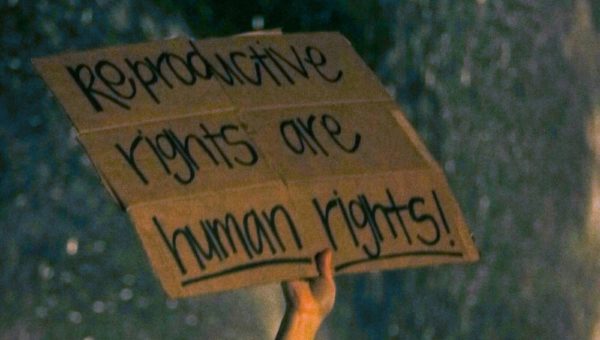 Reproductive
rights are
human rights!